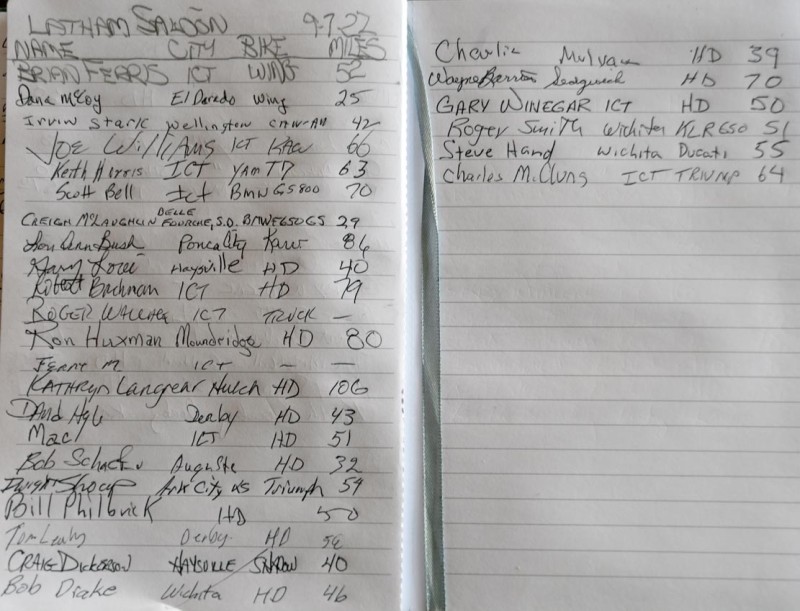 LATHAM SALOON 9-7-22
NAME CITY BIKE MILES
BRIAN FERRIS ICT WING 52
Dana McCoy El Dorado Wing 25
Irvin Stark Wellington CAN-AM 42
JOE WilliAMS ICT KAW 66
Keith Harris ICT YAM T7 63
Scott Bell Ict BMW GS800 70
CREIGH McLAUGHLIN BELLE FOURCHE, S.D. BMWE650GS 29
Lou Ann Bush Ponca City Kaw 86
Gary Lowe Haysville HD 40
Robert Buchman ICT HD 79
ROGER WALLACE ICT TRUCK —
Ron Huxman Moundridge HD 80
JERRY M ICT — —
KATHRYN Langrear Hutch HD 106
David Hyle Derby HD 43
Mac! ICT HD 51
Bob Augusta HD 32
Dwight Shoup Ark City KS Triumph 59
Bill Philbrick HD 50
Tom Leahy Derby HD
CRAIG Dickerson HAYSVILLE 40
Bob Drake Wichita HD 46
Charlie Mulvane HD 39
Wayne Sedgwick HD 70
GARY WINEGAR ICT HD 50
Roger Smith Wichita KLR650 51
Steve Hand Wichita Ducati 55
Charles McClung ICT TRIUMP 64